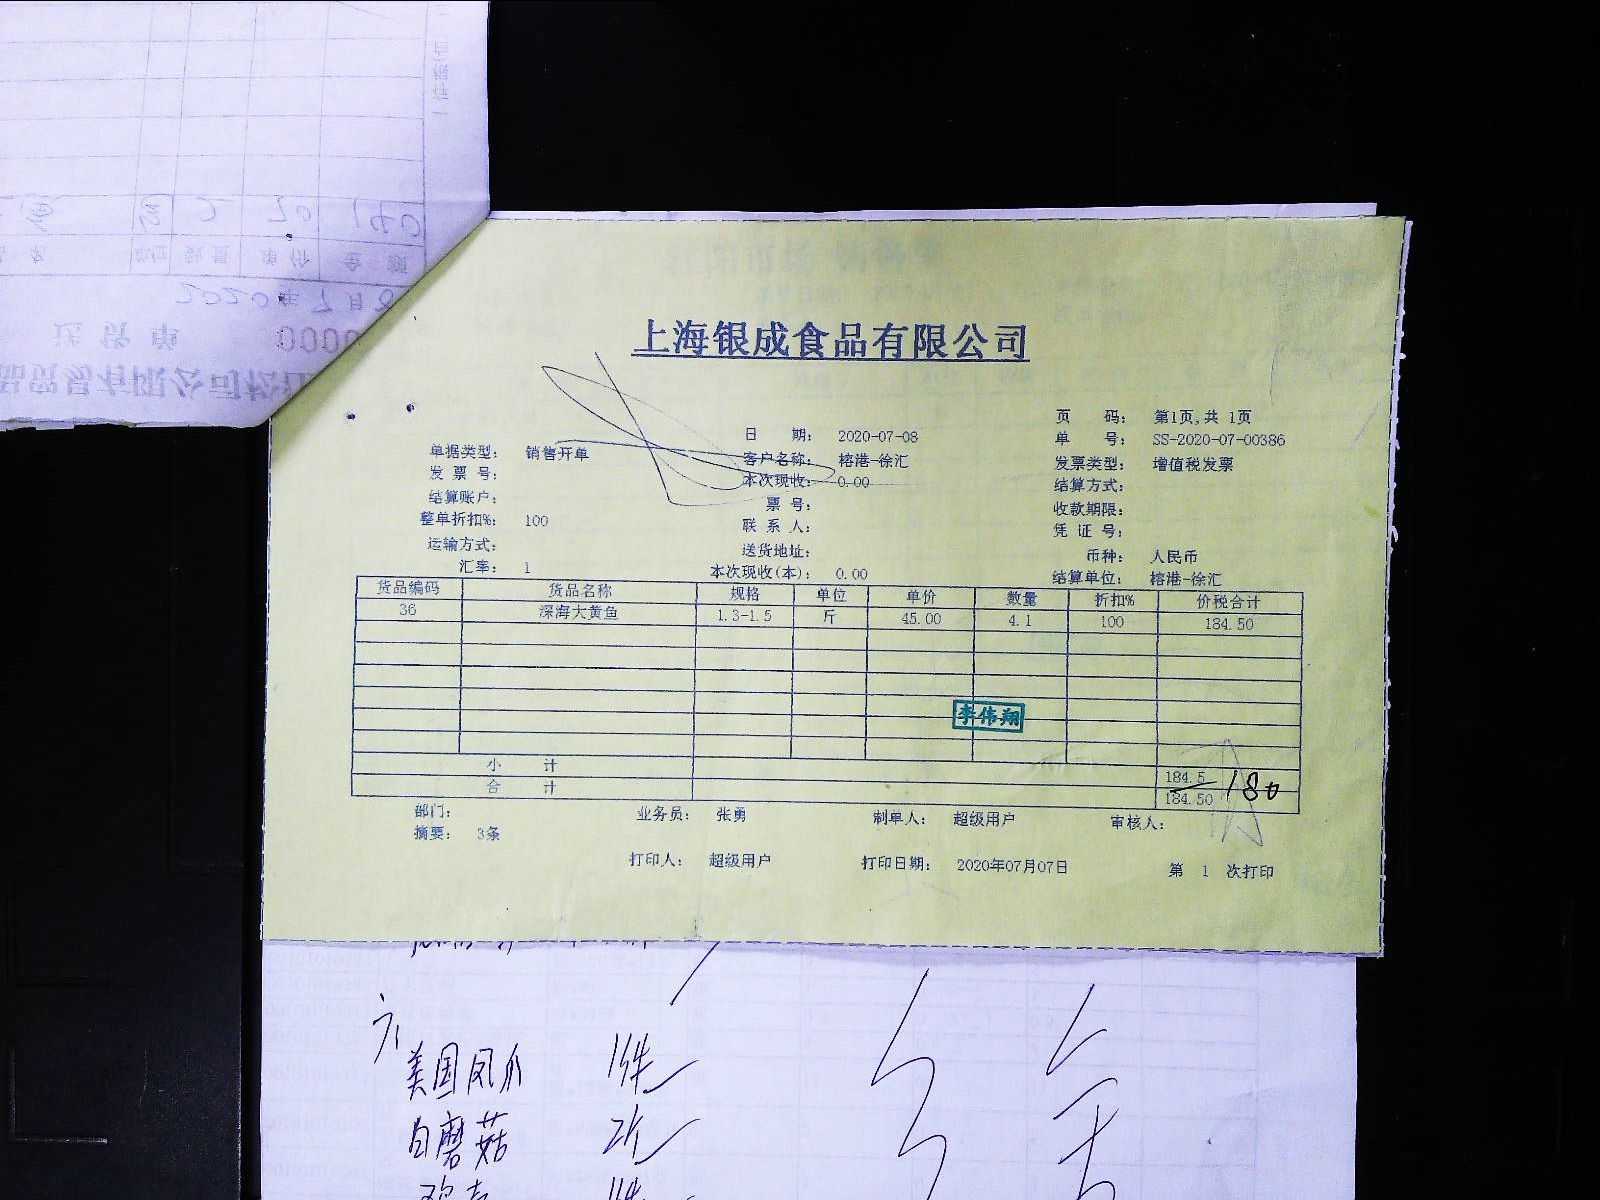 上海银成食品有限公司
页 码： 第1页,共 1页
日 期： 2020-07-08
单 号： SS-2020-07-00386
单据类型： 销售开单
客户名称： 榕港-徐汇
发票类型： 增值税发票
发 票 号：
本次现收： 0.00
结算方式：
结算账户：
票 号：
收款期限：
整单折扣%： 100
联 系 人：
凭 证 号：
运输方式：
送货地址：
币种： 人民币
汇率： 1
本次现收(本)： 0.00
结算单位： 榕港-徐汇
货品编码 货品名称 规格 单位 单价 数量 折扣% 价税合计
36 深海大黄鱼 1.3-1.5 斤 45.00 4.1 100 184.50
李伟翔
小 计 184.5
合 计 184.50
180
部门： 业务员： 张勇 制单人： 超级用户 审核人：
摘要： 3条
打印人： 超级用户 打印日期： 2020年07月07日 第 1 次打印
美国凤爪 1件
白磨菇 2个
送 货 单 0000
2020年7月8
单位 数量 单价 金 额
2 70 140